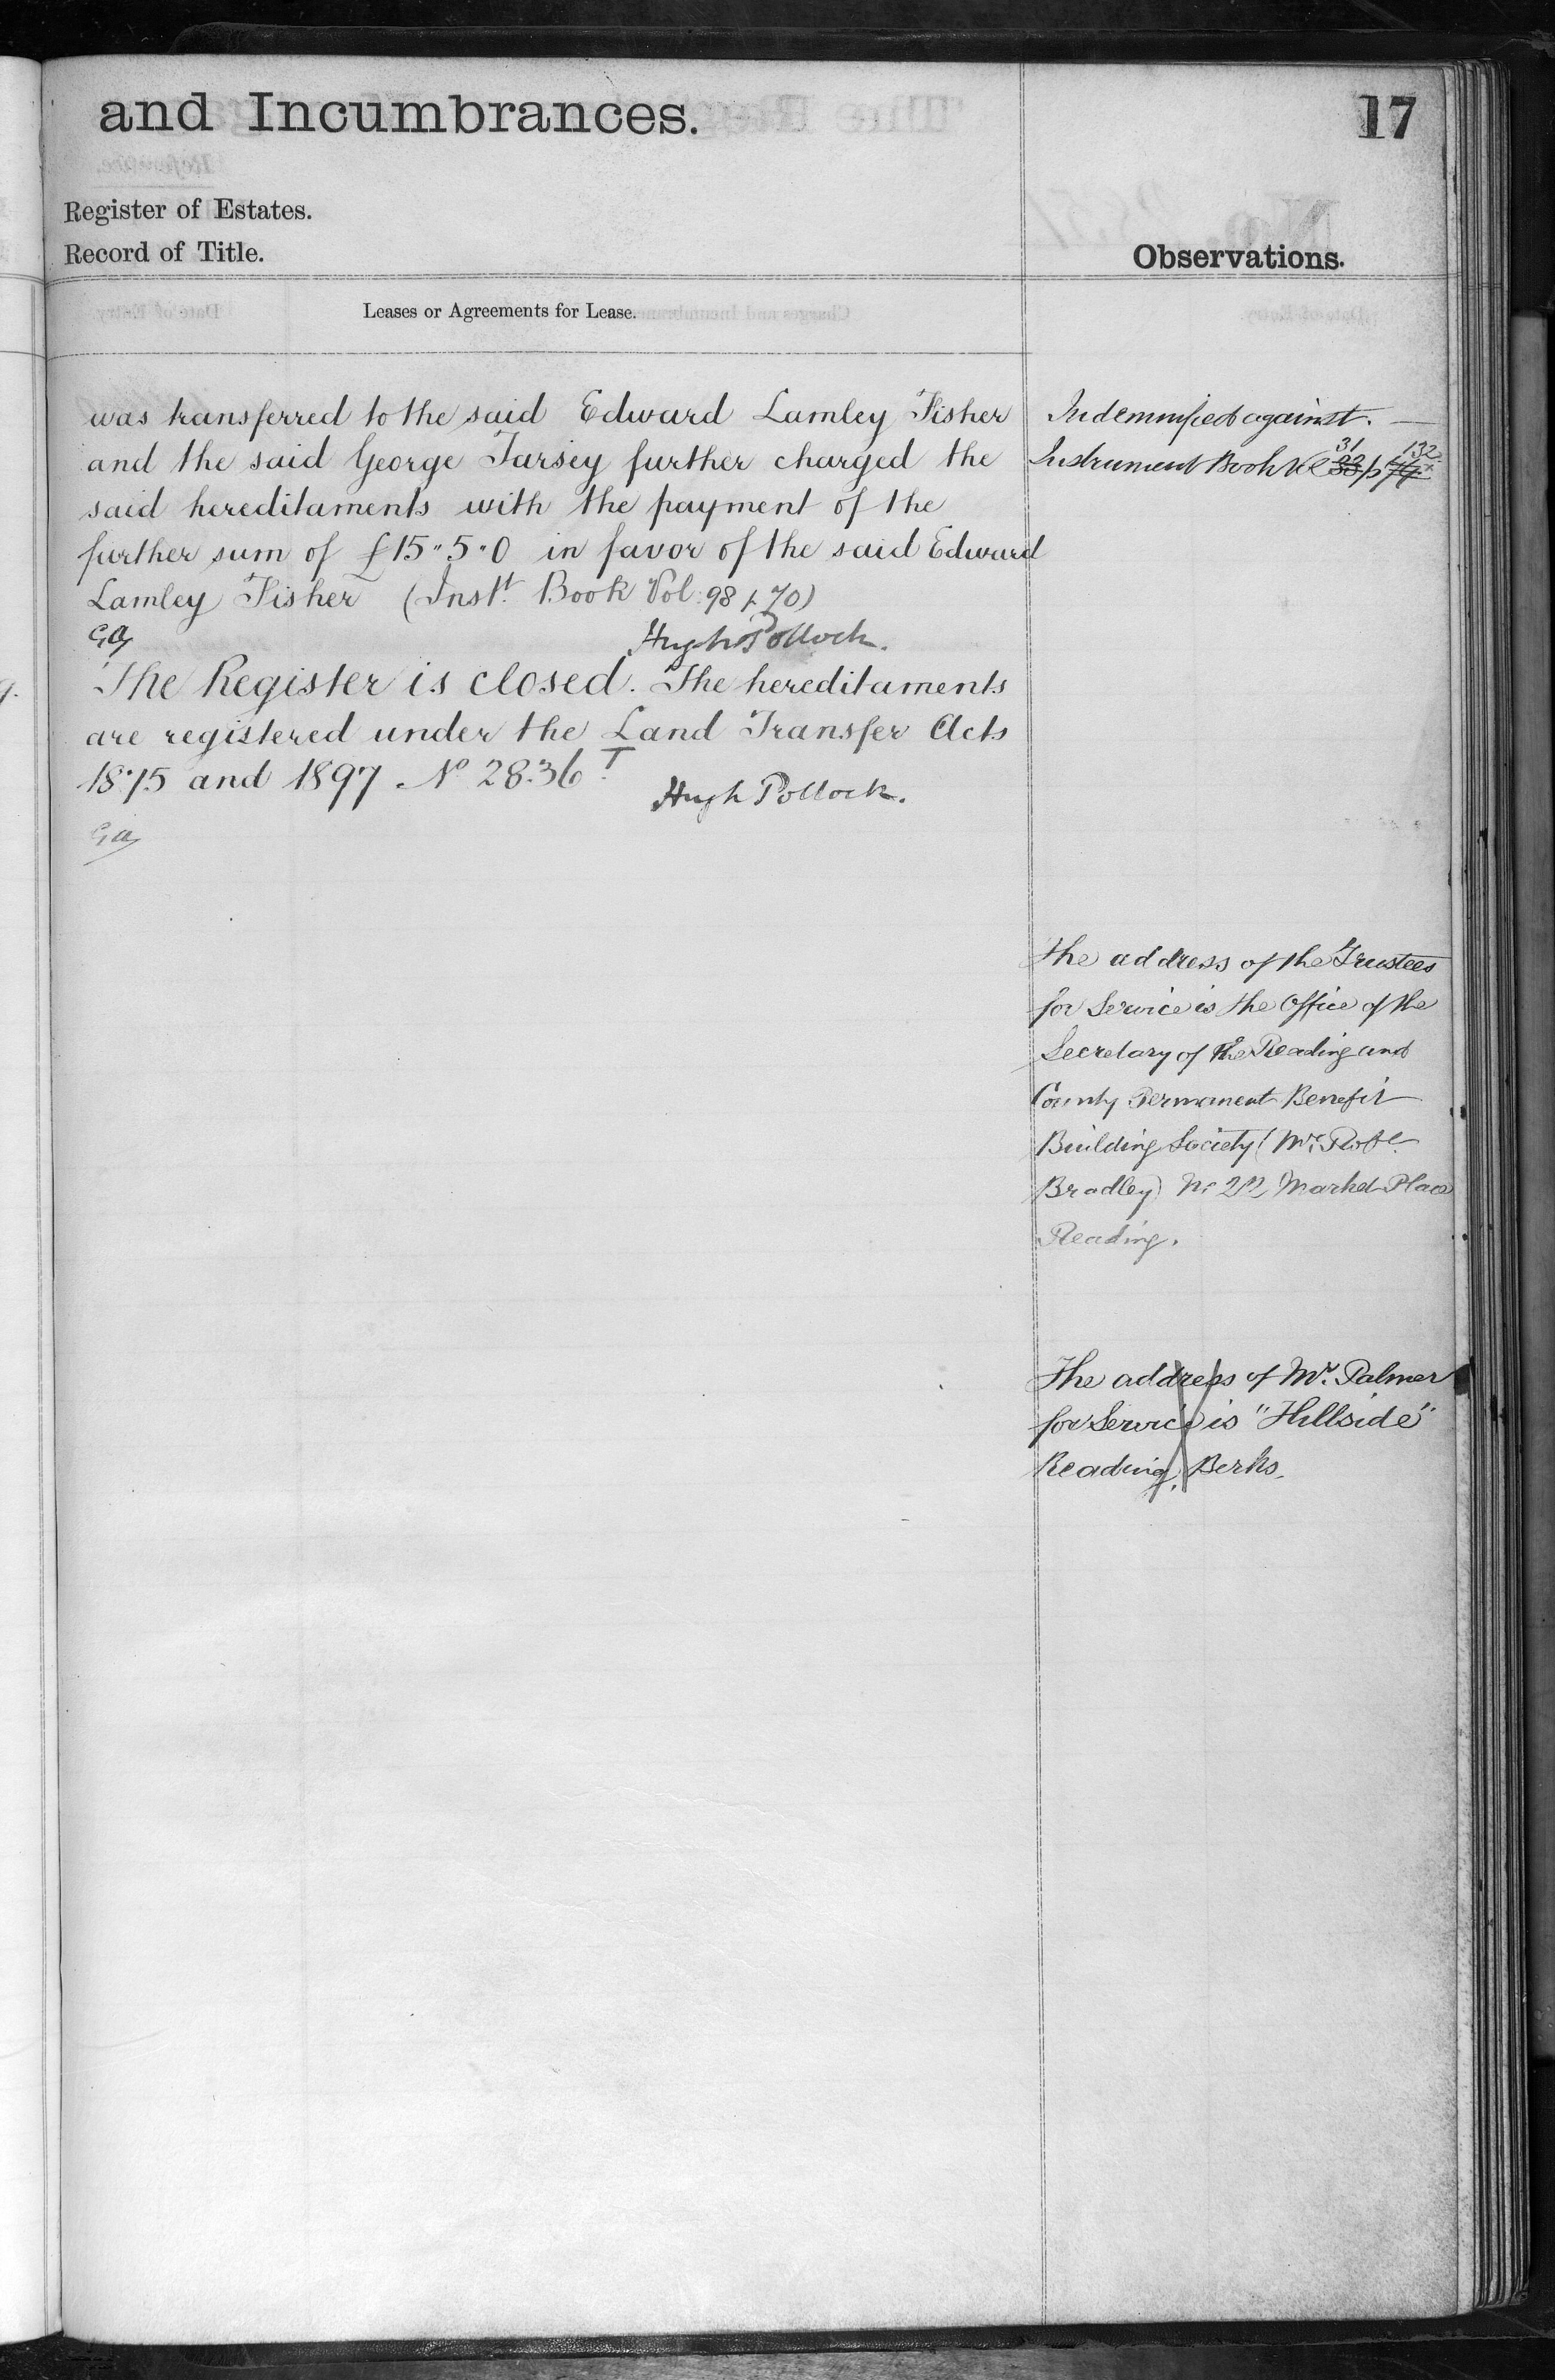 and Incumbrances.
17
Register of Estates.
Record of Title.
Observations.
Leases or Agreements for Lease.
was transferred to the said Edward Lamley Fisher
and the said George Tarsey further charged the
said hereditaments with the payment of the
further sum of £15"5"0 in favor of the said Edward
Lamley Fisher (Inst. Book Vol: 98 p 70)
GA
Hugh Pollock.
The Register is closed. The hereditaments
are registered under the Land Transfer Acts
1875 and 1897. No 2836 T.
Hugh Pollock.
GA
Indemnified against.
Instrument Book 31 p 132
The address of the Trustees
for Service is the Office of the
Secretary of the Reading and
County Permanent Benefit
Building Society (Mr.
Bradley) Market Place
Reading.
The address of Mr. Palmer
for Service is "Hillside"
Reading, Berks.